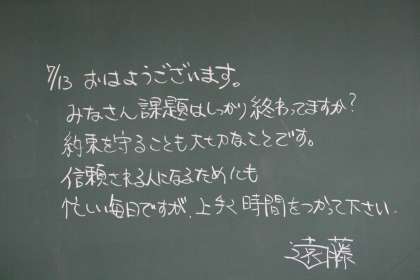 7/13 おはようございます。
みなさん課題はしっかり終わってますか?
約束を守ることも大切なことです。
信頼される人になるためにも
忙しい毎日ですが、上手く時間をつかって下さい.
遠藤